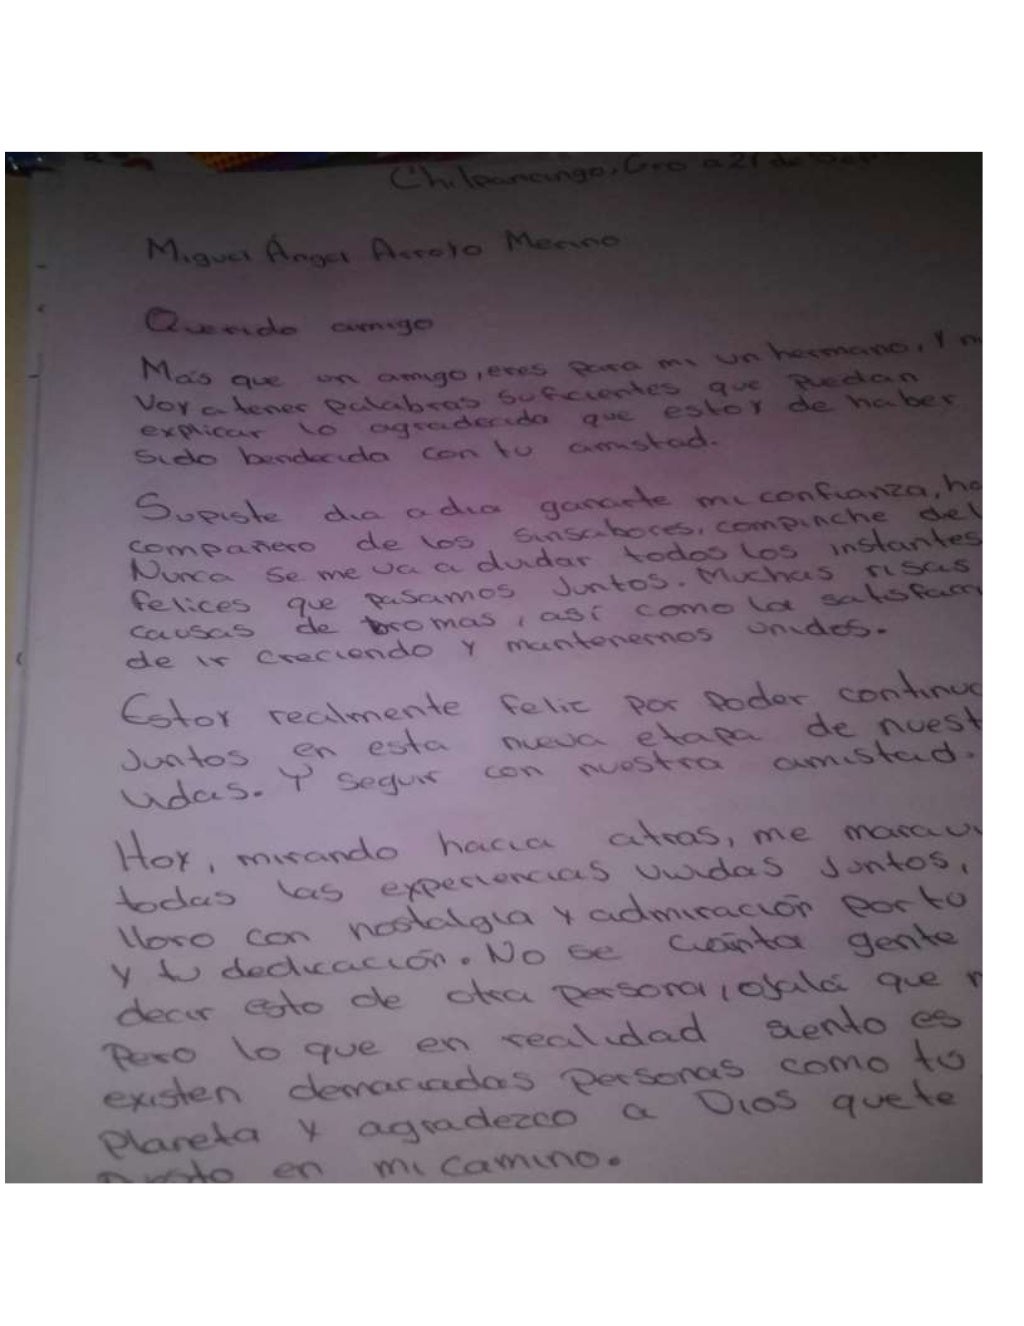 Chilpancingo, Gro a 21 de Sep
Miguel Ángel Arroyo Merino
Querido amigo
Más que un amigo, eres para mi un hermano, Y n
Voy a tener palabras suficientes que puedan
explicar lo agradecida que estoy de haber
sido bendecida con tu amistad.
Supiste dia a dia ganarte mi confianza, ha
compañero de los sinsabores, compinche del
Nunca se me va a duidar todos los instantes
felices que pasamos Juntos. Muchas risas
causas de bromas, así como la satisfacci
de ir creciendo y mantenernos unidos.
Estoy realmente feliz por poder continua
Juntos en esta nueva etapa de nuest
vidas. Y seguir con nuestra amistad.
Hoy, mirando hacia atras, me maravi
todas las experiencias vividas Juntos,
lloro con nostalgia y admiración por tu
y tu dedicación. No se cuánta gente
decir esto de otra persona, ojalá que n
Pero lo que en realidad siento es
existen demaciadas personas como tu
Planeta y agradezco a Dios que te
puesto en mi camino.